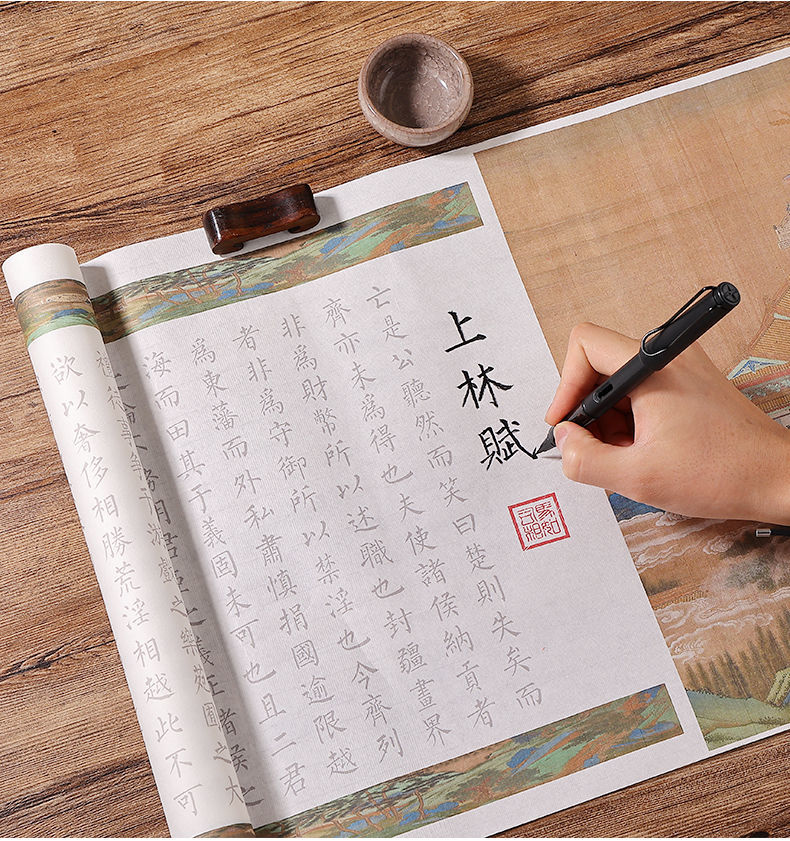 上林賦
司馬相如
亡是公聽然而笑曰楚則失矣而
齊亦未爲得也夫使諸侯納貢者
非爲財幣所以述職也封疆畫界
者非爲守御所以禁淫也今齊列
爲東藩而外私肅慎捐國逾限越
海而田其于義固未可也且二君
禮游戲之樂苑囿之大
欲以奢侈相勝荒淫相越此不可